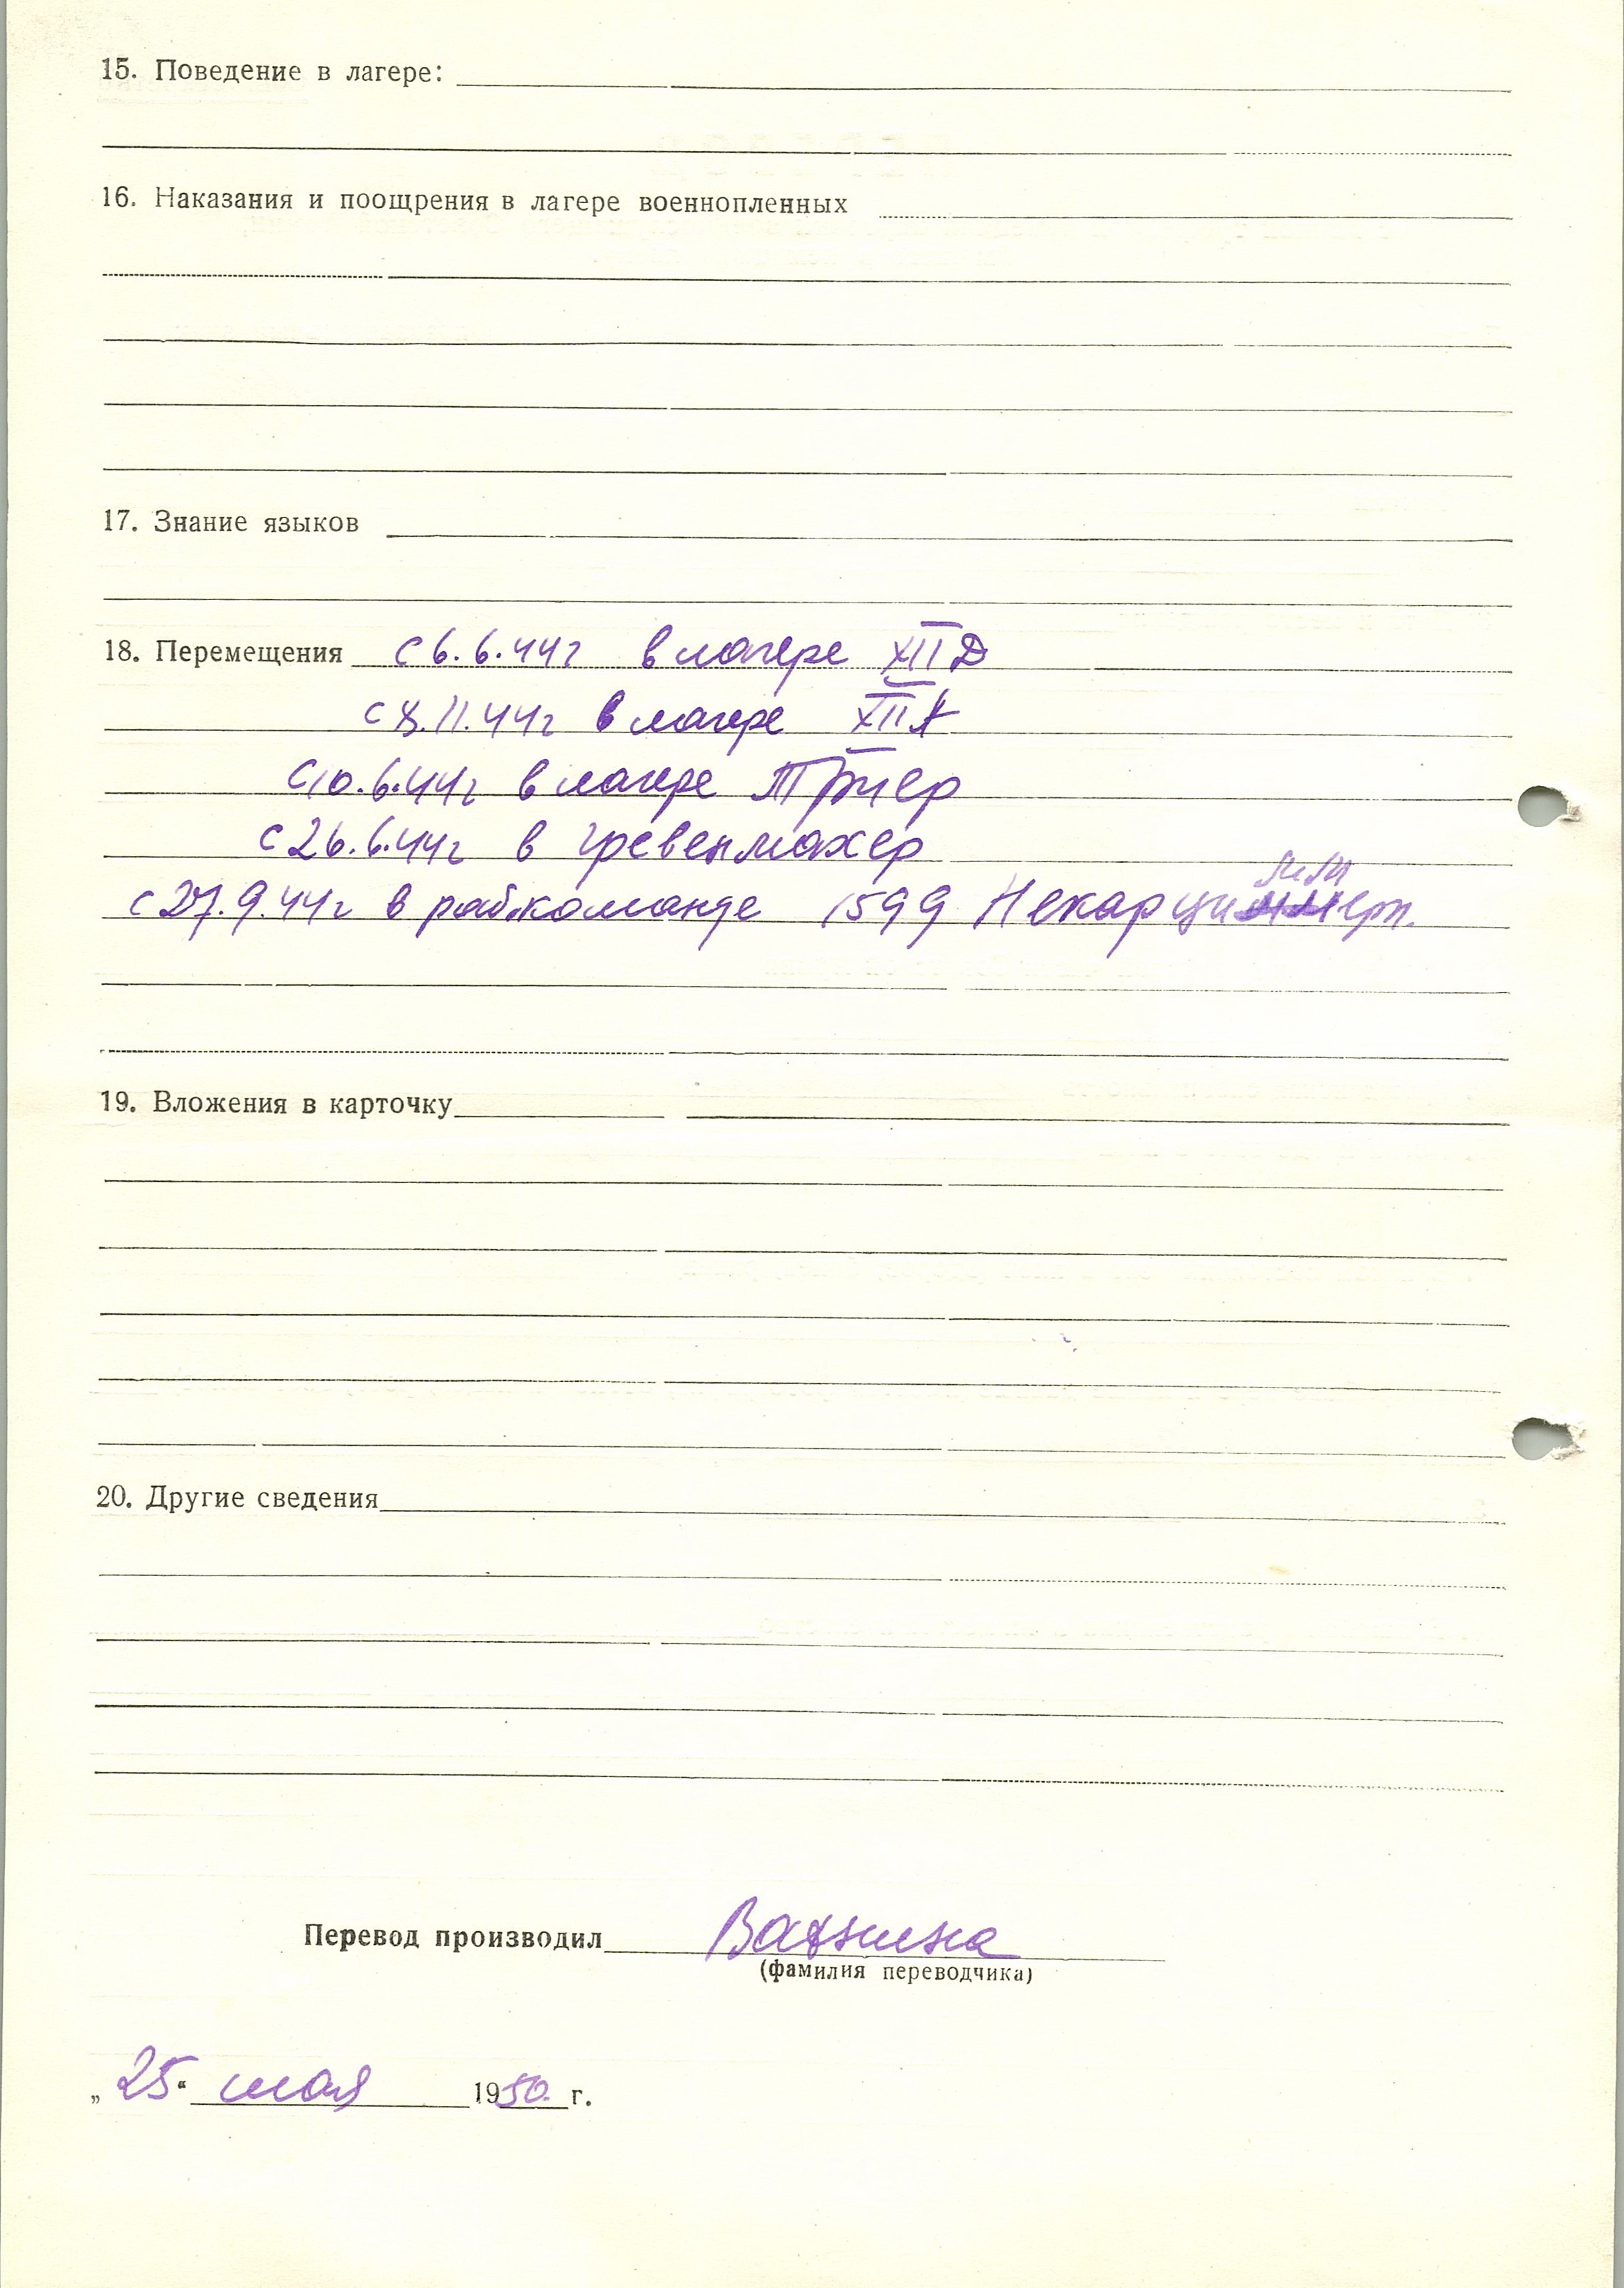 15. Поведение в лагере:
16. Наказания и поощрения в лагере военнопленных
17. Знание языков
18. Перемещения с 6.6.44г в лагере XII Д
с 8.11.44г в лагере XII А
с 10.6.44г в лагере Триер
с 26.6.44г в Гревенмахер
с 27.9.44г в раб.команде 1599 Некарциммерн.
19. Вложения в карточку
20. Другие сведения
Перевод производил
(фамилия переводчика)
„25“ мая 1950 г.